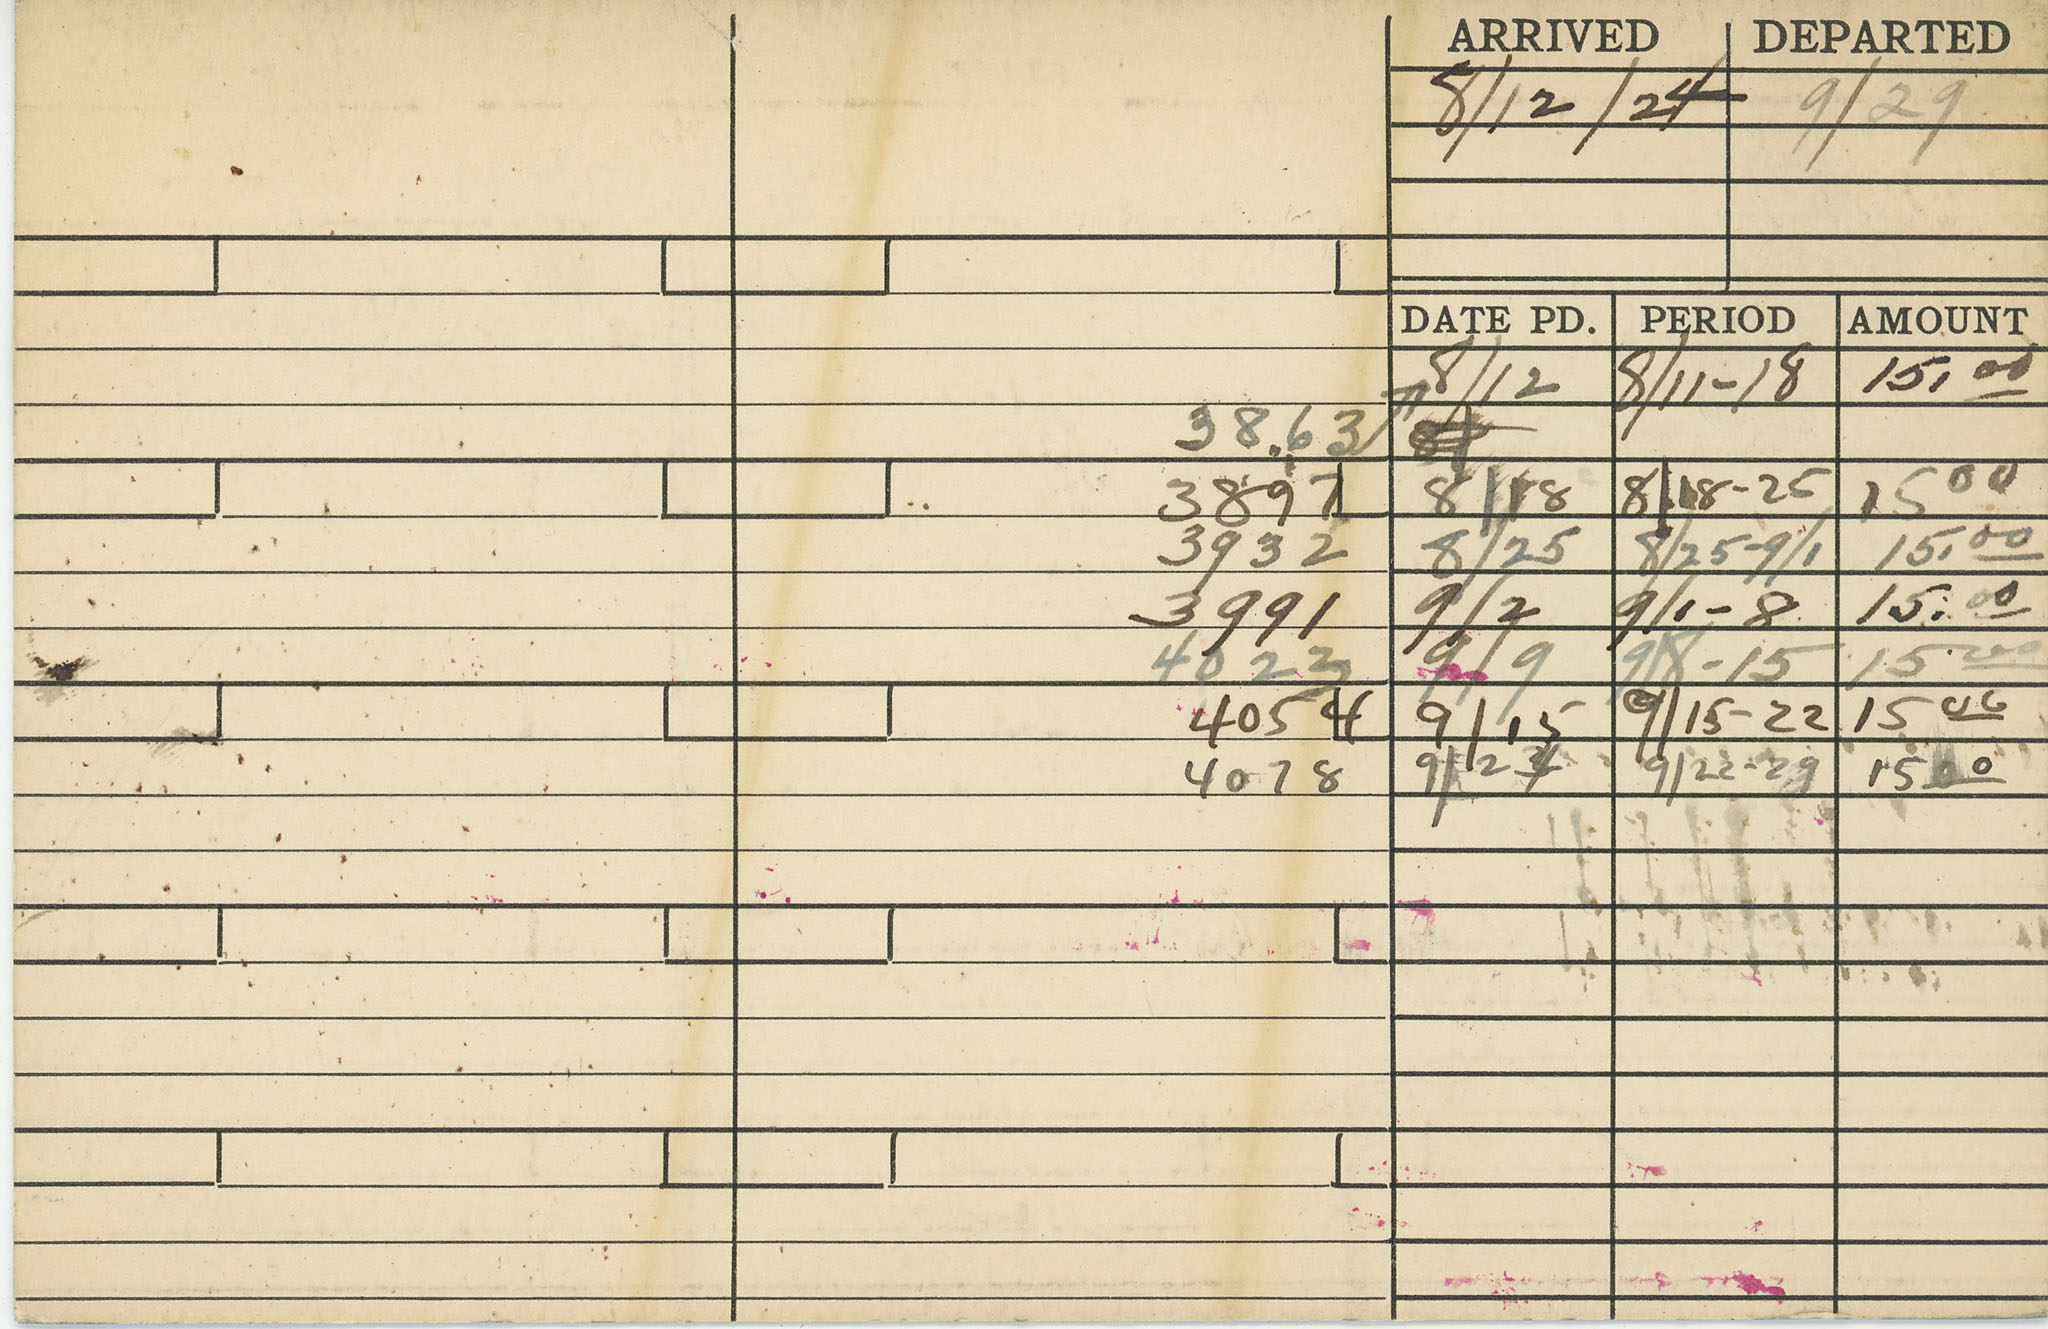 ARRIVED DEPARTED
8/12/24 9/29
DATE PD. PERIOD AMOUNT
8/12 8/11-18 15.00
38.63
3897 8/18 8/18-25 15 00
3932 8/25 8/25-9/1 15.00
3991 9/2 9/1-8 15.00
4023 9/9 9/8-15 15.00
4054 9/15 9/15-22 15 00
4078 9/22-29 15 00